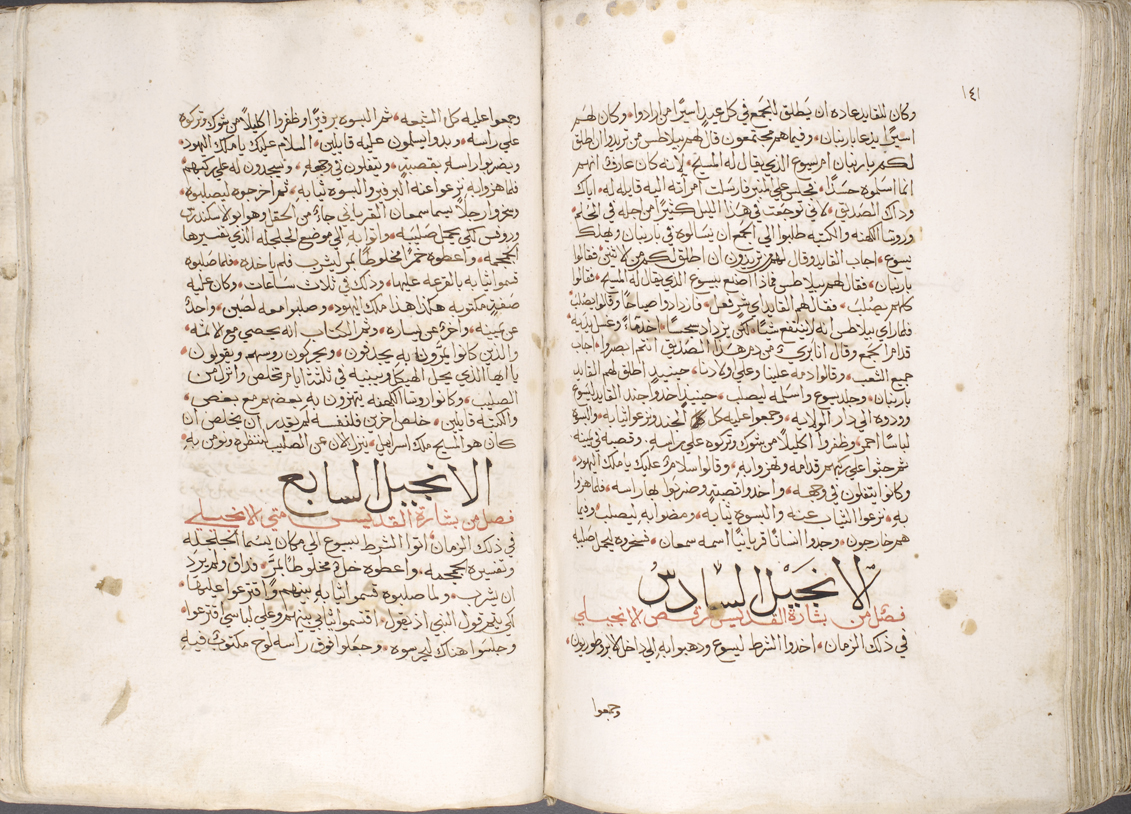 ١٤١
وكان للقايد عاده ان يطلق للجمع في كل عيد اسيرًا من ارادوا وكان لهم
اسيرٌ يدعا باربنان وفيما هم مجتمعون قال لهم بيلاطس من تريدوا ان اطلق
لكم باربنان ام يسوع الذي يقال له المسيح لانه كان عارف انهم
انما اسلموه حسدًا فجلس علي المنبر فارسلت امراته اليه قايله له اياك
وذاك الصديق لاني توجعت في هذا الليل كثيرًا من اجله في الحلم
وروسا الكهنه والكتبه طلبوا الي الجمع ان يسالوه في باربنان ويهلك
يسوع اجاب القايد وقال لهم من تريدون ان اطلق لكم من الاثنين فقالوا
باربنان فقال لهم بيلاطس فماذا اصنع بيسوع الذي يقال له المسيح فقالوا
كلهم يصلب فقال لهم القايد اي شرٍ فعل فازدادوا صياحًا وقالوا يصلب
فلما راي بيلاطس انه لا ينتفع شيًا لكن يزداد سجسًا اخذ ماءً وغسل يديه
قدام الجمع وقال انا بري من دم هذا الصديق انتم ابصروا اجاب
جميع الشعب وقالوا دمه علينا وعلي اولادنا حينيدٍ اطلق لهم القايد
باربنان وجلد يسوع واسلمه ليصلب حينيدٍ اخدوا جند القايد يسوع
وردوه الي دار الولايه وجمعوا عليه كل الجند ونزعوا ثيابه والبسوه
لباسًا احمر وظفروا اكليلاً من شوك وتركوه علي راسه وقصبه في يمينه
ثم جثوا علي ركبهم قدامه وهزوا به وقالوا سلامٌ عليك يا ملك اليهود
وكانوا يتفلون في وجهه واخدوا قصبهٍ وضربوا بها راسه فلما هزوا
به نزعوا الثياب عنه والبسوه ثيابه ومضوا به ليصلب وفيما
هم خارجون وجدوا انسانًا قريانيًا اسمه سمعان فسخروه ليحمل صليبه
الانجيل السادس
فصل من بشارة القديس مرقص الانجيلي
في ذلك الزمان اخدوا الشرط ليسوع ودهبوا به الي داخل الابروطوريون
وجمعوا
وجمعوا عليه كل الشيعه ثم البسوه برفيرًا وظفروا اكليلاً من شوك وتركوه
علي راسه وبدوا يسلمون عليه قايلين السلام عليك يا ملك اليهود
ويضربوا راسه بقصبةٍ ويتفلون في وجهه ويسجدون له علي ركبهم
فلما هزوا به نزعوا عنه البرفير والبسوه ثيابه ثم اخرجوه ليصلبوه
وسخروا رجلاً يسما سمعان القرياني جاءً من الحقل وهو ابو الاسكندرس
وروفس لكي يحمل صليبه واتوا به الي موضع الجلجله الذي تفسيرها
الجمجمه واعطوه خمرًا مخلوطًا بمر ليشرب فلم ياخده فلما صلبوه
قسموا ثيابه بالقرعه عليها وذلك في ثلاث ساعات وكان علته
صفيةٍ مكتوبه هكذا هذا ملك اليهود وصلبوا معه لصين واحدٌ
عن يمينه واخرٌ عن يساره وتم الكتاب انه يحصي مع الاثمه
والذين كانوا يمرون به يجدفون ويحركون روسهم ويقولون
يا ايها الذي يحل الهيكل ويبنيه في ثلثة ايام تخلص وانزل من
الصليب وكانوا روسا الكهنه يهزون به بعضهم مع بعض
والكتبه قايلين خلص اخرين فلنفسه لم يقدر ان يخلص ان
كان هو المسيح ملك اسراييل ينزل الان عن الصليب لننظره ونومن به
الانجيل السابع
فصل من بشارة القديس متي الانجيلي
في ذلك الزمان اتوا الشرط بيسوع الي مكان يسما الجلجله
وتفسيره الجمجمه واعطوه خلاً مخلوطًا بمر فداق ولم يرد
ان يشرب ولما صلبوه قسموا ثيابه بينهم واقترعوا عليها
لكي يتم قول النبي اذ يقول اقتسموا ثيابي بينهم وعلي لباسي اقترعوا
وجلسوا هناك ليحرسوه وجعلوا فوق راسه لوح مكتوب فيه